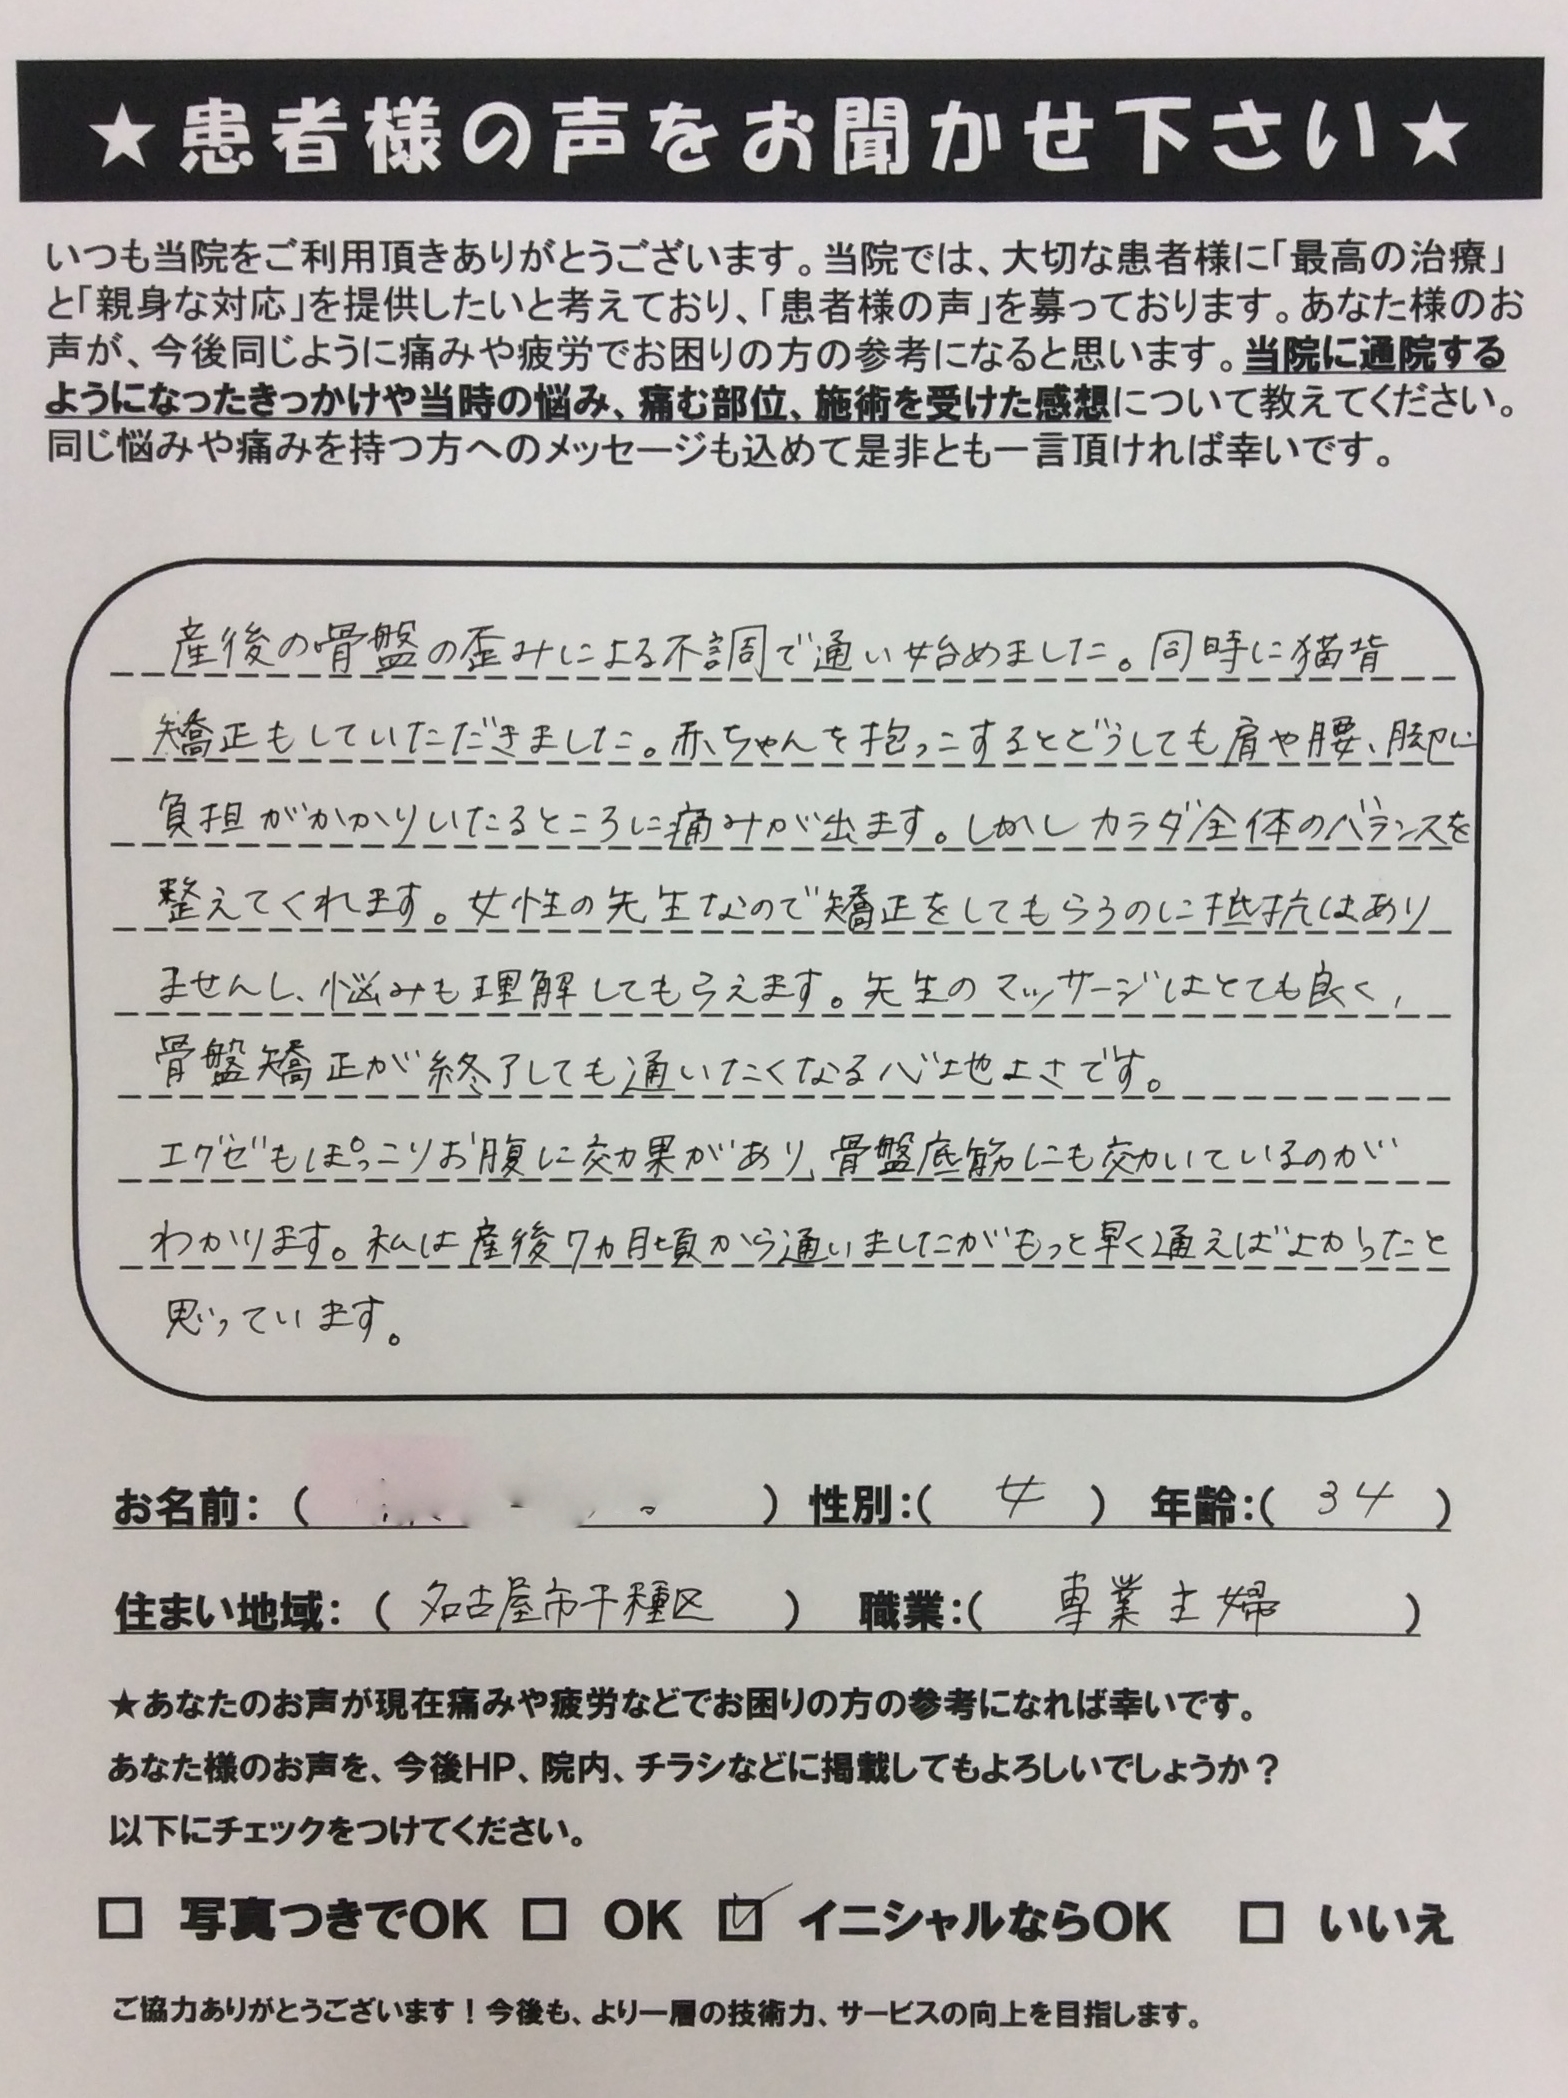 ★患者様の声をお聞かせ下さい★
いつも当院をご利用頂きありがとうございます。当院では、大切な患者様に「最高の治療」
と「親身な対応」を提供したいと考えており、「患者様の声」を募っております。あなた様のお
声が、今後同じように痛みや疲労でお困りの方の参考になると思います。当院に通院する
ようになったきっかけや当時の悩み、痛む部位、施術を受けた感想について教えてください。
同じ悩みや痛みを持つ方へのメッセージも込めて是非とも一言頂ければ幸いです。
産後の骨盤の歪みによる不調で通い始めました。同時に猫背
矯正もしていただきました。赤ちゃんを抱っこするとどうしても肩や腰、脚に
負担がかかりいたるところに痛みが出ます。しかしカラダ全体のバランスを
整えてくれます。女性の先生なので矯正をしてもらうのに抵抗はあり
ませんし、悩みも理解してもらえます。先生のマッサージはとても良く、
骨盤矯正が終了しても通いたくなる心地よさです。
エグゼもぽっこりお腹に効果があり、骨盤底筋にも効いているのが
わかります。私は産後7ヵ月頃から通いましたがもっと早く通えばよかったと
思っています。
お名前：（ ） 性別：（ 女 ） 年齢：（ 34 ）
住まい地域：（ 名古屋市千種区 ） 職業：（ 専業主婦 ）
★あなたのお声が現在痛みや疲労などでお困りの方の参考になれば幸いです。
あなた様のお声を、今後HP、院内、チラシなどに掲載してもよろしいでしょうか？
以下にチェックをつけてください。
□ 写真つきでOK □ OK ☑ イニシャルならOK □ いいえ
ご協力ありがとうございます！今後も、より一層の技術力、サービスの向上を目指します。